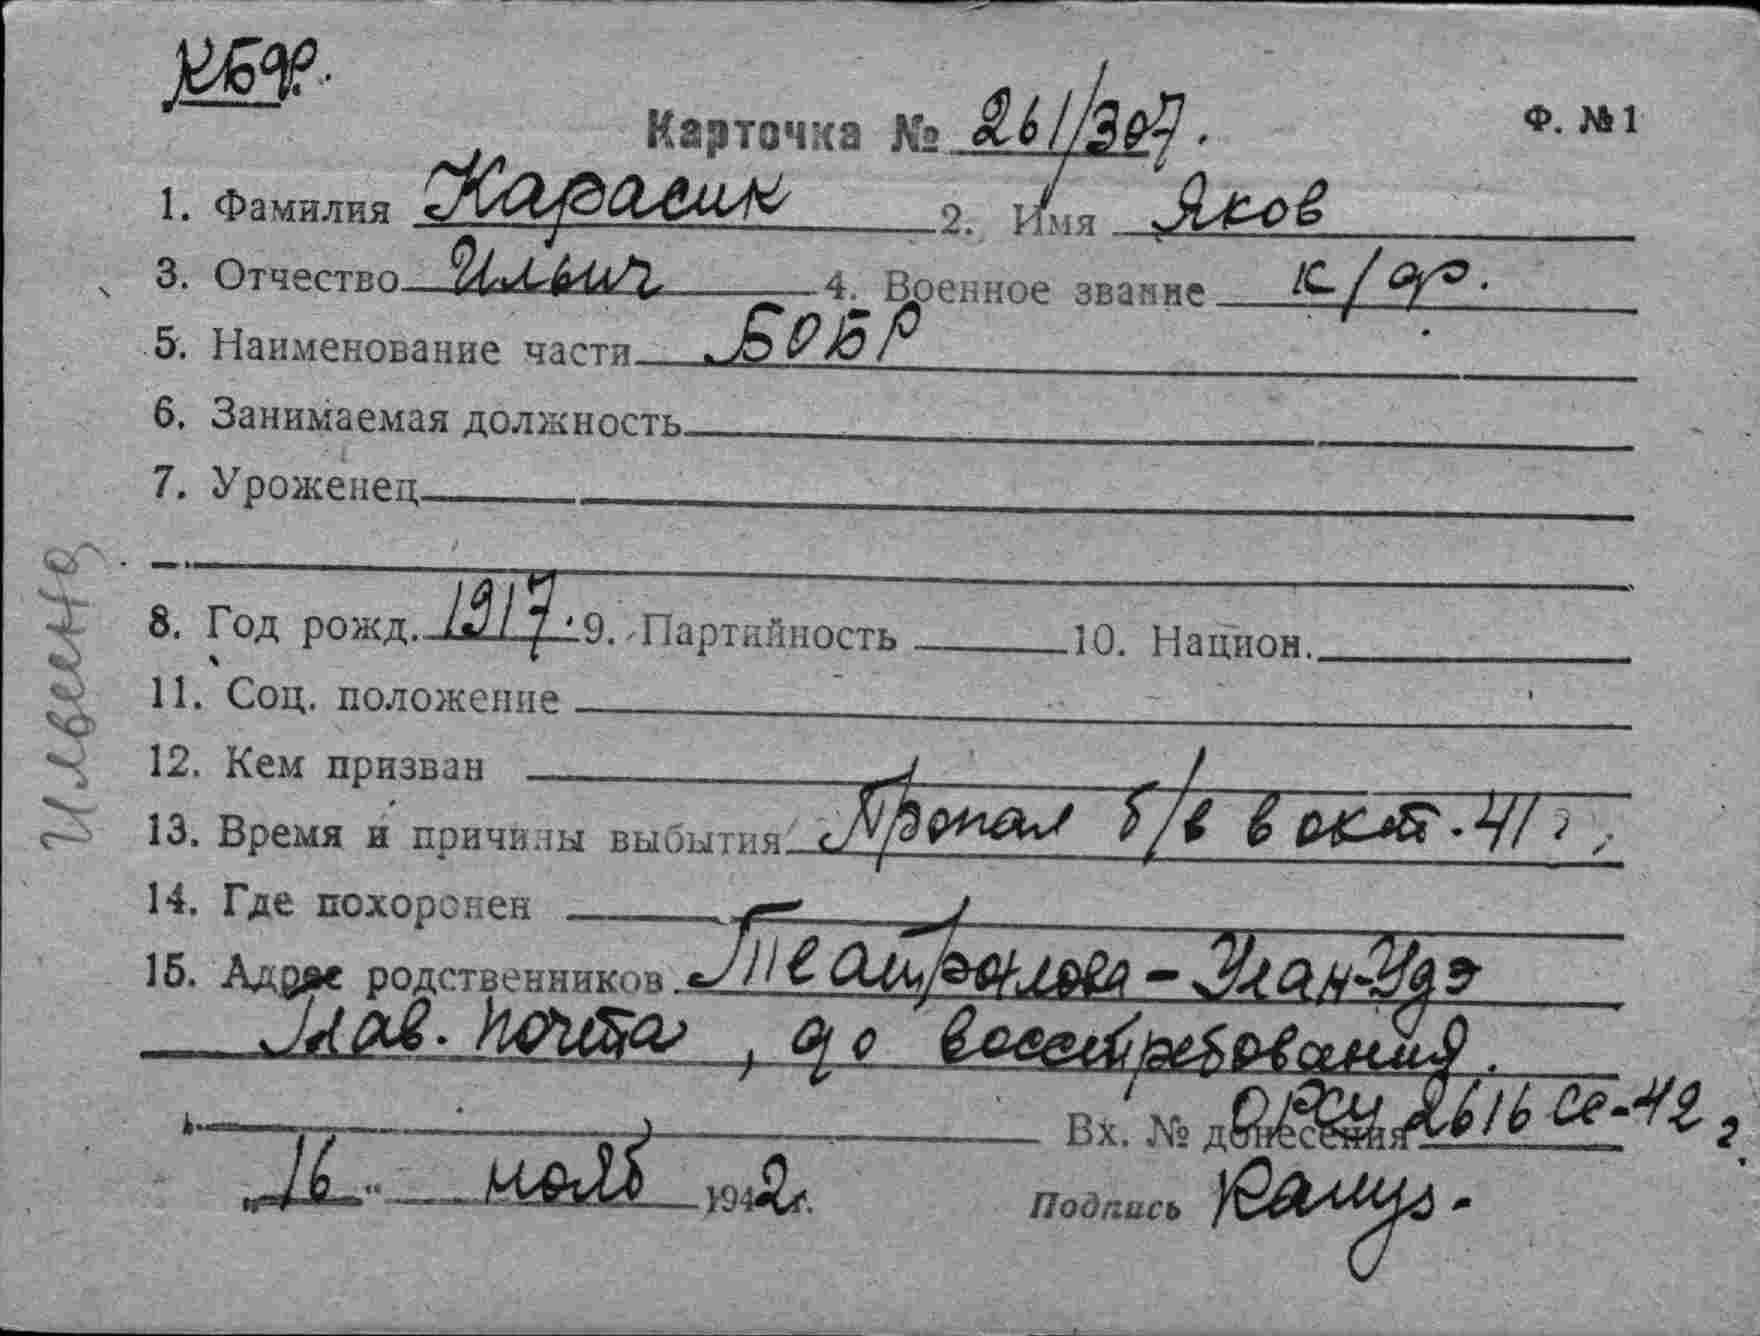 КБФ.
Карточка № 261/307.
Ф. №1
1. Фамилия Карасик 2. Имя Яков
3. Отчество Ильич 4. Военное звание к/ф.
5. Наименование части БОБР
6. Занимаемая должность
7. Уроженец
8. Год рожд. 1917. 9. Партийность 10. Национ.
11. Соц. положение
12. Кем призван
13. Время и причины выбытия Пропал б/в в окт. 41 г.
14. Где похоронен
15. Адрес родственников - Улан-Удэ
Глав. почта, до востребования.
Вх. № донесения ОРСУ 2616 сс-42 г
„16“ нояб 1942г. Подпись